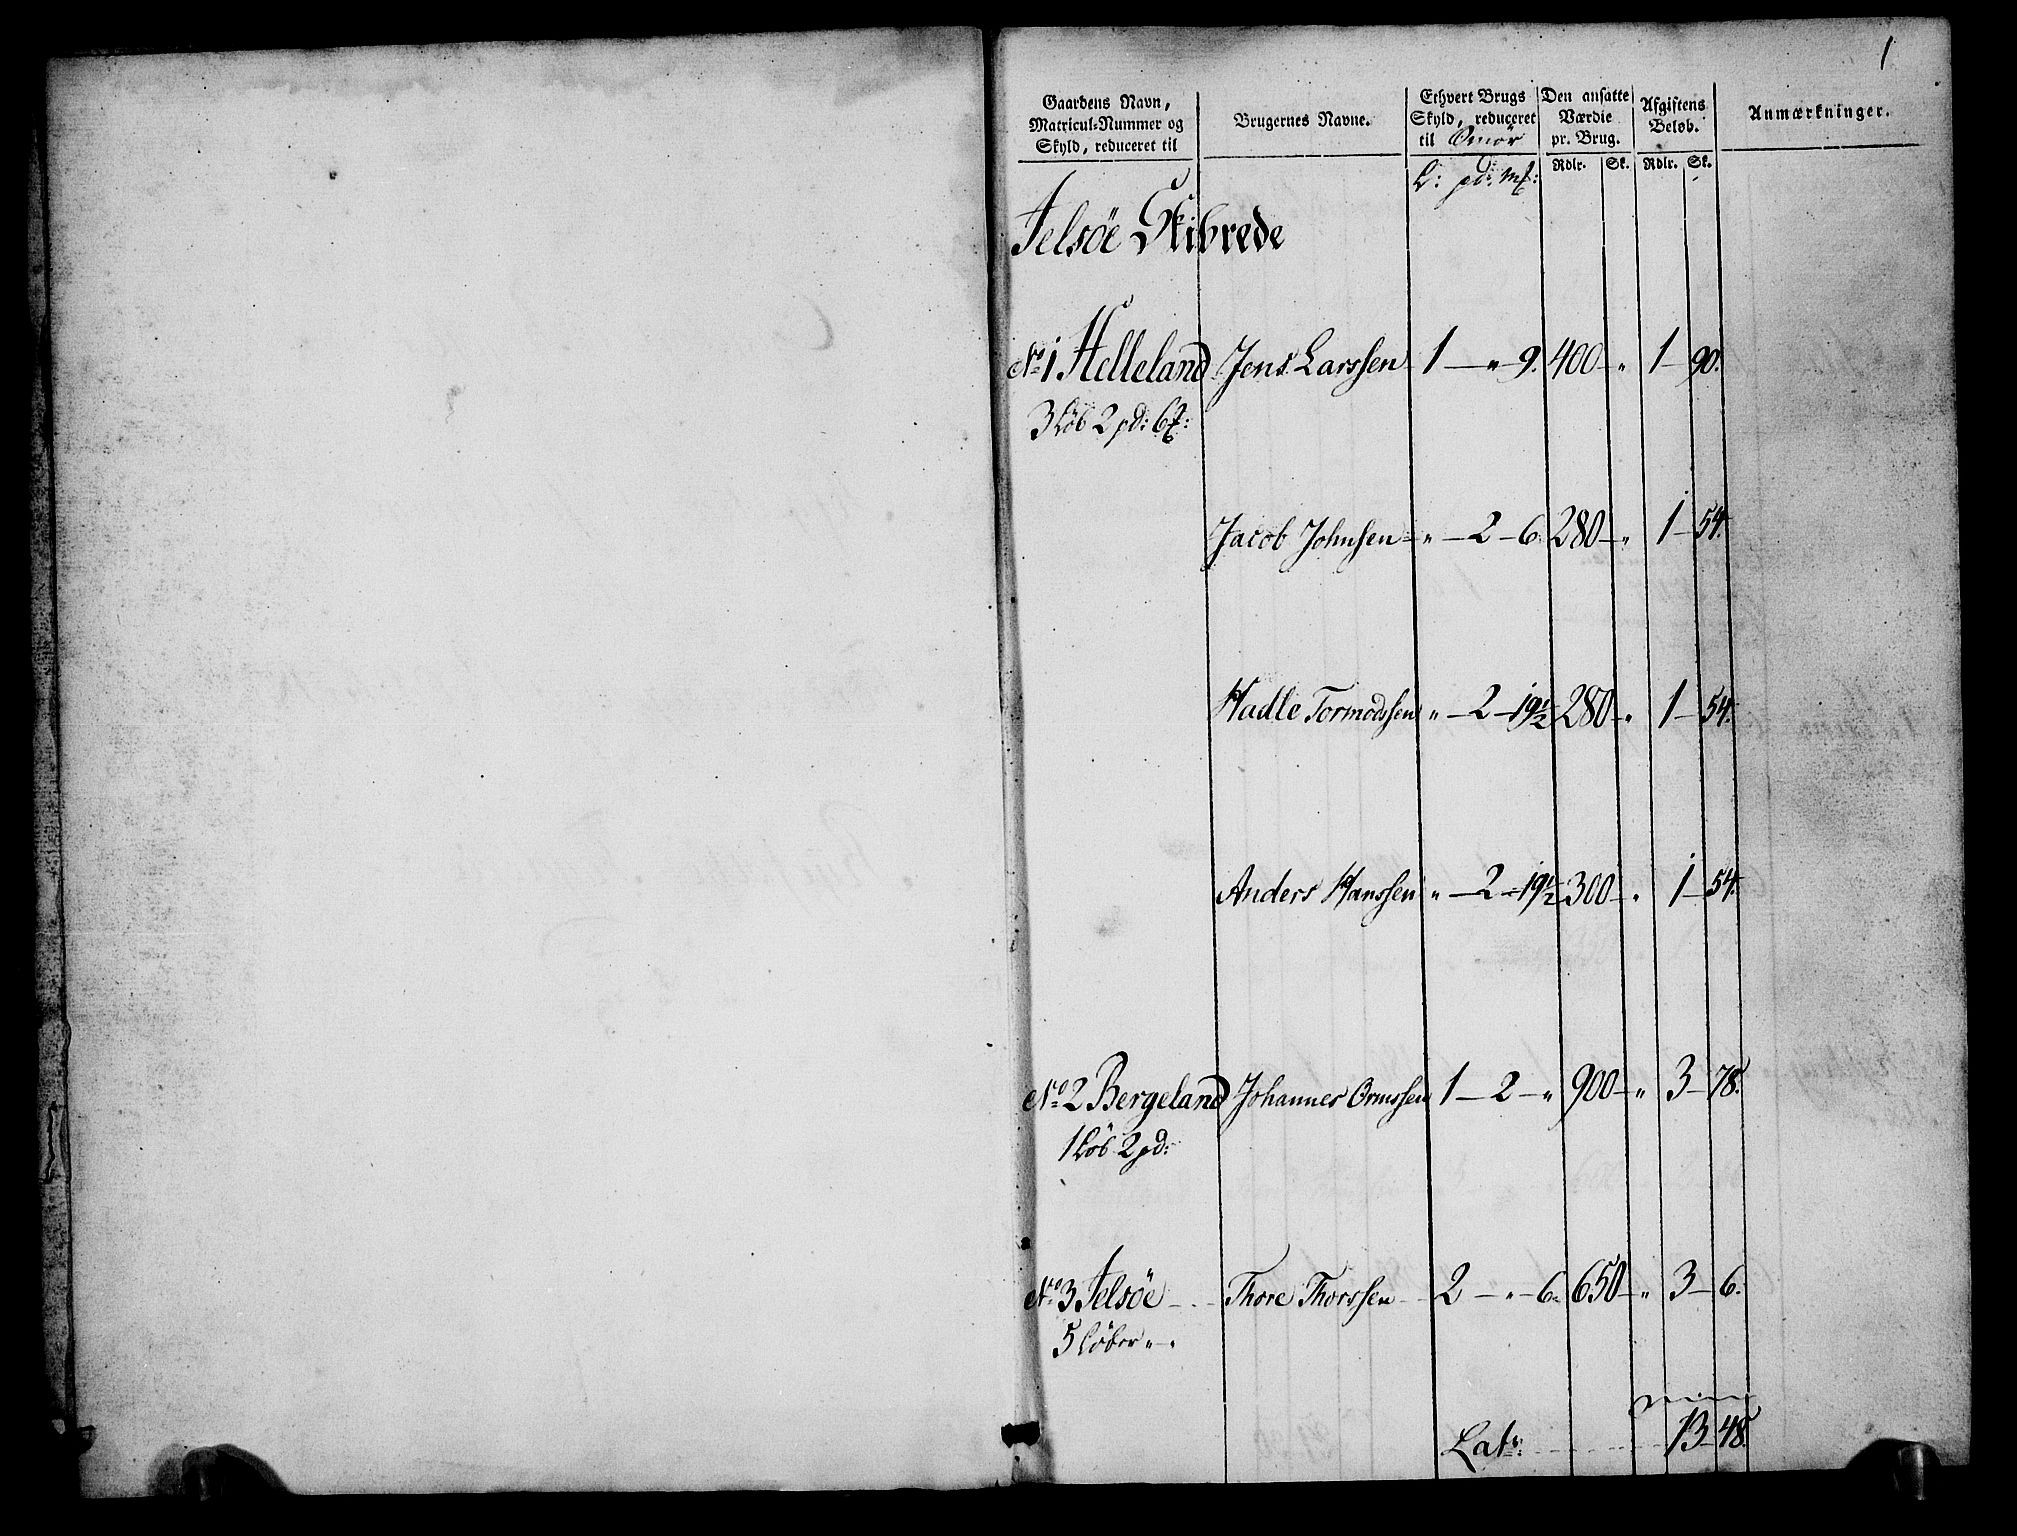 1
Gaardens Navn, Matricul-Nummer og Skyld, reduceret til | Brugernes Navne. | Ethvert Brugs Skyld, reduceret til Smör | Den ansatte Værdie pr. Brug. | Afgiftens Beløb. | Anmærkninger.
L: pd: mf: | Rdlr. | Sk. | Rdlr. | Sk.
Jelsöe Skibrede
No 1 Helleland Jens Larssen 1 — " 9. 400 — " 1 — 90.
3 Löb 2 pd: 6 f:
Jacob Johnsen — " — 2 — 6. 280 — " 1 — 54.
Hadle Tormodssen " — 2 — 19½ 280 — " 1 — 54.
Anders Hanssen " — 2 — 19½ 300 — " 1 — 54.
No 2 Bergeland Johannes Ormssen 1 — 2 — " 900 — " 3 — 78.
1 Löb 2 pd:
No 3 Jelsöe Thore Thorssen 2 — " — 6. 650 — " 3 — 6.
5 Löber " — "
Lats: 13 48.